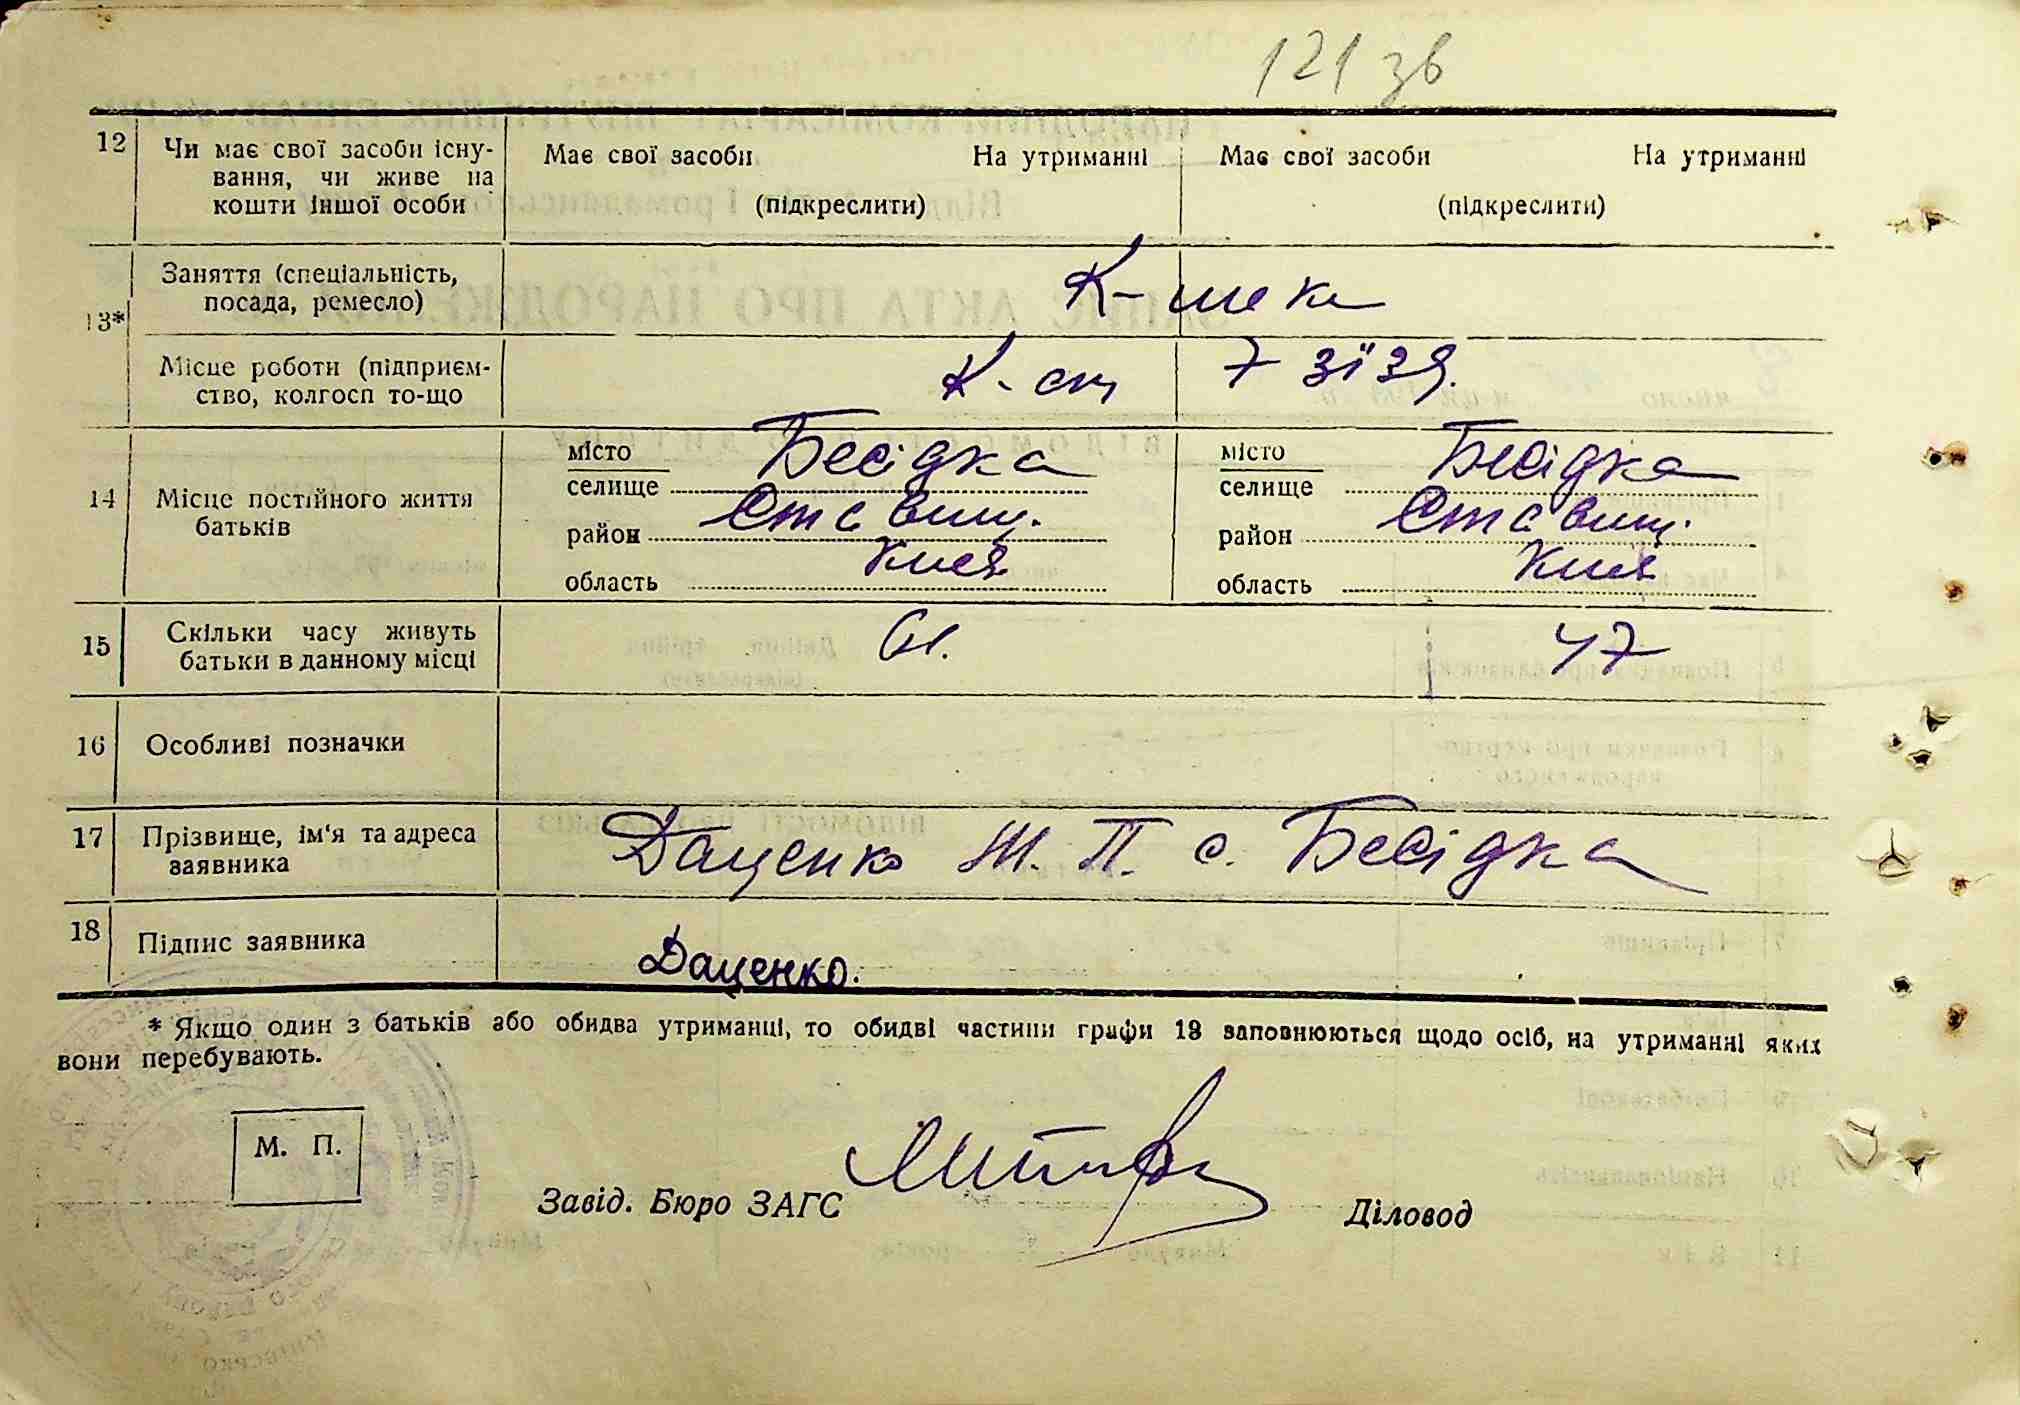 121 зв
12 Чи має свої засоби існу- Має свої засоби На утриманні Має свої засоби На утриманні
вання, чи живе на
кошти іншої особи (підкреслити) (підкреслити)
13* Заняття (спеціальність,
посада, ремесло) К-шека
Місце роботи (підприєм- К-сп 7 зїзд.
ство, колгосп то-що
14 Місце постійного життя
батьків
місто Бесідка місто Бесідка
селище селище
район Ставищ. район Ставищ.
область Київ область Київ
15 Скільки часу живуть
батьки в данному місці 47
16 Особливі позначки
17 Прізвище, ім'я та адреса
заявника Даценко М. П. с. Бесідка
18 Підпис заявника Даценко.
* Якщо один з батьків або обидва утриманці, то обидві частини графи 13 заповнюються щодо осіб, на утриманні яких
вони перебувають.
М. П.
Завід. Бюро ЗАГС Діловод